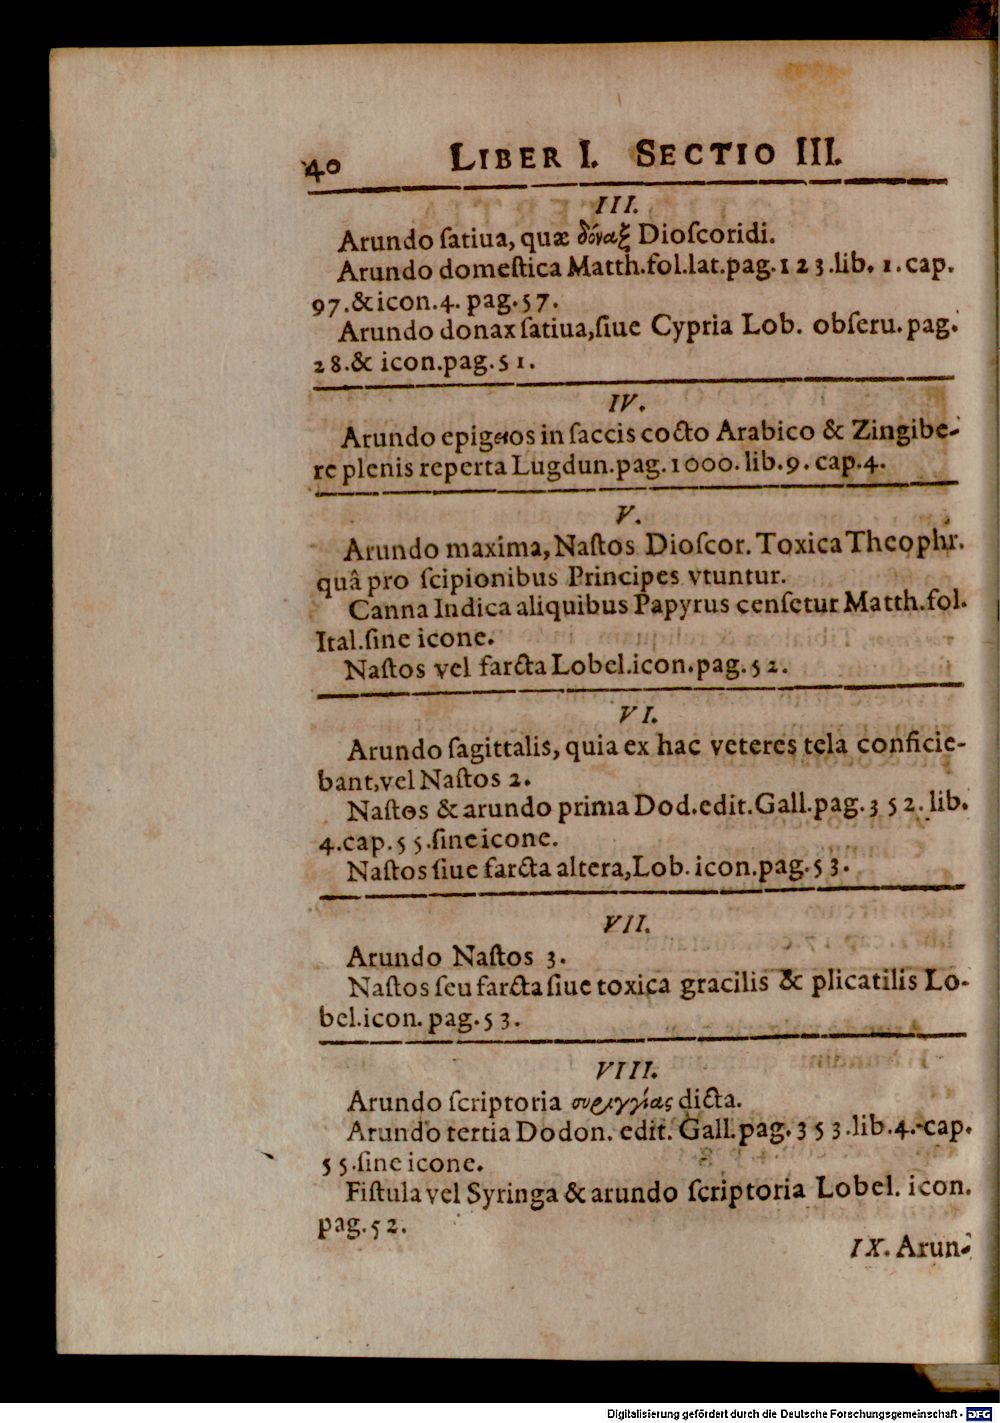 40 LIBER I. SECTIO III.
III.
Arundo ſatiua, quæ δόναξ Dioſcoridi.
Arundo domeſtica Matth.fol.lat.pag.123.lib. 1.cap.
97.& icon.4. pag.57.
Arundo donax ſatiua,ſiue Cypria Lob. obſeru.pag.
28.& icon.pag.51.
IV.
Arundo epigeios in ſaccis cocto Arabico & Zingibe-
re plenis reperta Lugdun.pag.1000.lib.9.cap.4.
V.
Arundo maxima, Naſtos Dioſcor. Toxica Theophr.
quâ pro ſcipionibus Principes vtuntur.
Canna Indica aliquibus Papyrus cenſetur Matth.fol.
Ital.ſine icone.
Naſtos vel farcta Lobel.icon.pag.52.
VI.
Arundo ſagittalis, quia ex hac veteres tela conficie-
bant,vel Naſtos 2.
Naſtos & arundo prima Dod.edit.Gall.pag.352.lib.
4.cap.55.ſine icone.
Naſtos ſiue farcta altera,Lob. icon.pag.53.
VII.
Arundo Naſtos 3.
Naſtos ſeu farcta ſiue toxica gracilis & plicatilis Lo-
bel.icon. pag.53.
VIII.
Arundo ſcriptoria συριγγίας dicta.
Arundo tertia Dodon. edit. Gall.pag.353.lib.4.cap.
55.ſine icone.
Fiſtula vel Syringa & arundo ſcriptoria Lobel. icon.
pag.52.
IX. Arun-
Digitalisierung gefördert durch die Deutsche Forschungsgemeinschaft - DFG